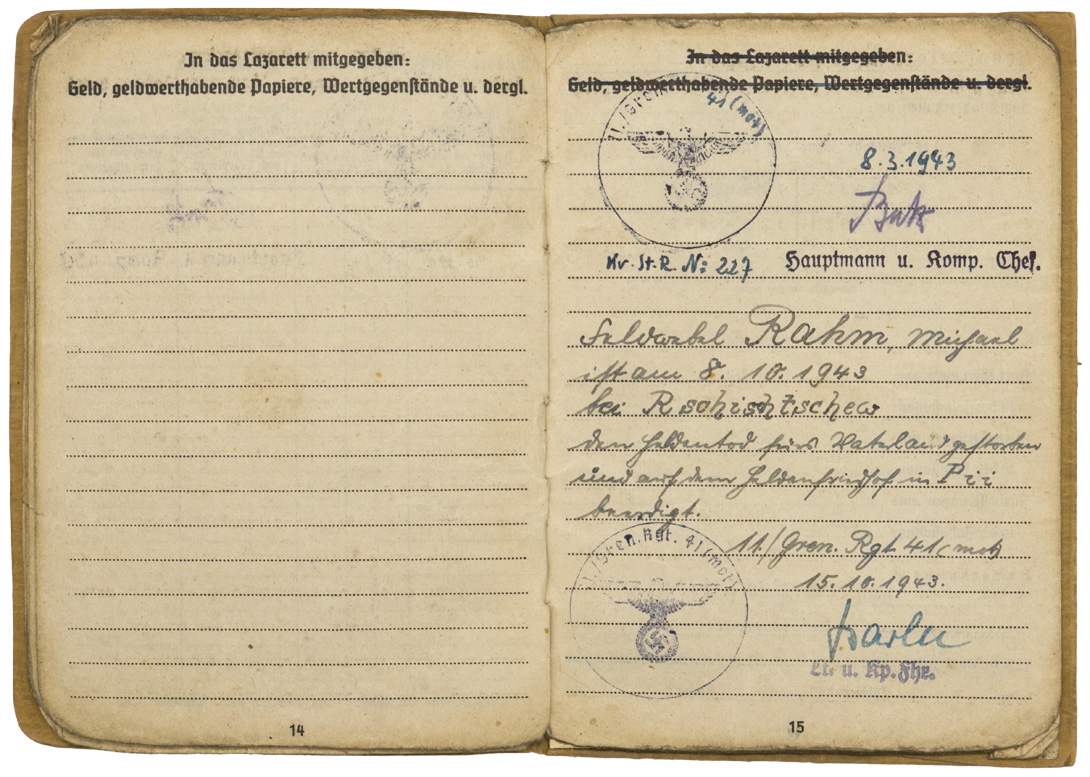 In das Lazarett mitgegeben:
Geld, geldwerthabende Papiere, Wertgegenstände u. dergl.
14
In das Lazarett mitgegeben:
Geld, geldwerthabende Papiere, Wertgegenstände u. dergl.
11./Gren. 41 (mot)
8.3.1943
Kr. St. R. No: 227
Hauptmann u. Komp. Chef.
Feldwebel Rahm, Michael
ist am 8. 10. 1943
bei Rschischtschew
den Heldentod fürs Vaterland gestorben
und auf dem Heldenfriedhof in Pii
beerdigt.
11./Gren. Rgt. 41 (mot)
11./Gren. Rgt 41 (mot)
15.10.1943.
Lt. u. Kp. Fhr.
15